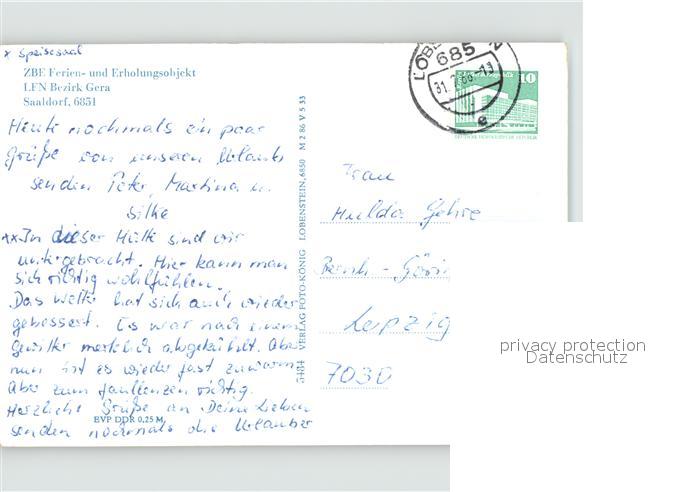 x Speisesaal
ZBE Ferien- und Erholungsobjekt
LFN Bezirk Gera
Saaldorf, 6851
Heute nochmals ein paar
Grüße von unserem Urlaub
senden Peter, Martina u.
Silke
xx In dieser Hütte sind wir
untergebracht. Hier kann man
sich richtig wohlfühlen.
Das Wetter hat sich auch wieder
gebessert. Es war nach einem
Gewitter merklich abgekühlt. Aber
nun ist es wieder fast zu warm
Aber zum faullenzen richtig.
Herzliche Grüße an Deine Lieben
senden nochmals die Urlauber
EVP DDR 0,25 M
5484 VERLAG FOTO-KÖNIG LOBENSTEIN, 6850 M 2 86 V 5 33
685
e
10
DEUTSCHE DEMOKRATISCHE REPUBLIK
Frau
Hulda Gehre
Leipzig
7030
privacy protection
Datenschutz